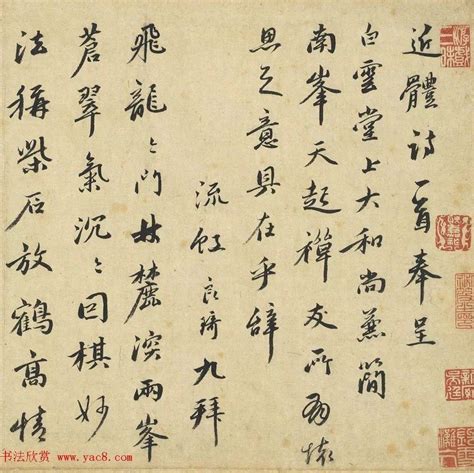 近體詩一首奉呈
白雲堂上大和尚兼簡
南峯天起禪友所有懷
思之意具在乎辭
流虹良琦九拜
飛龍〻門林麓深兩峯
蒼翠氣沉〻曰棋妙
法稱柴石放鶴高情
书法欣赏 www.yac8.com